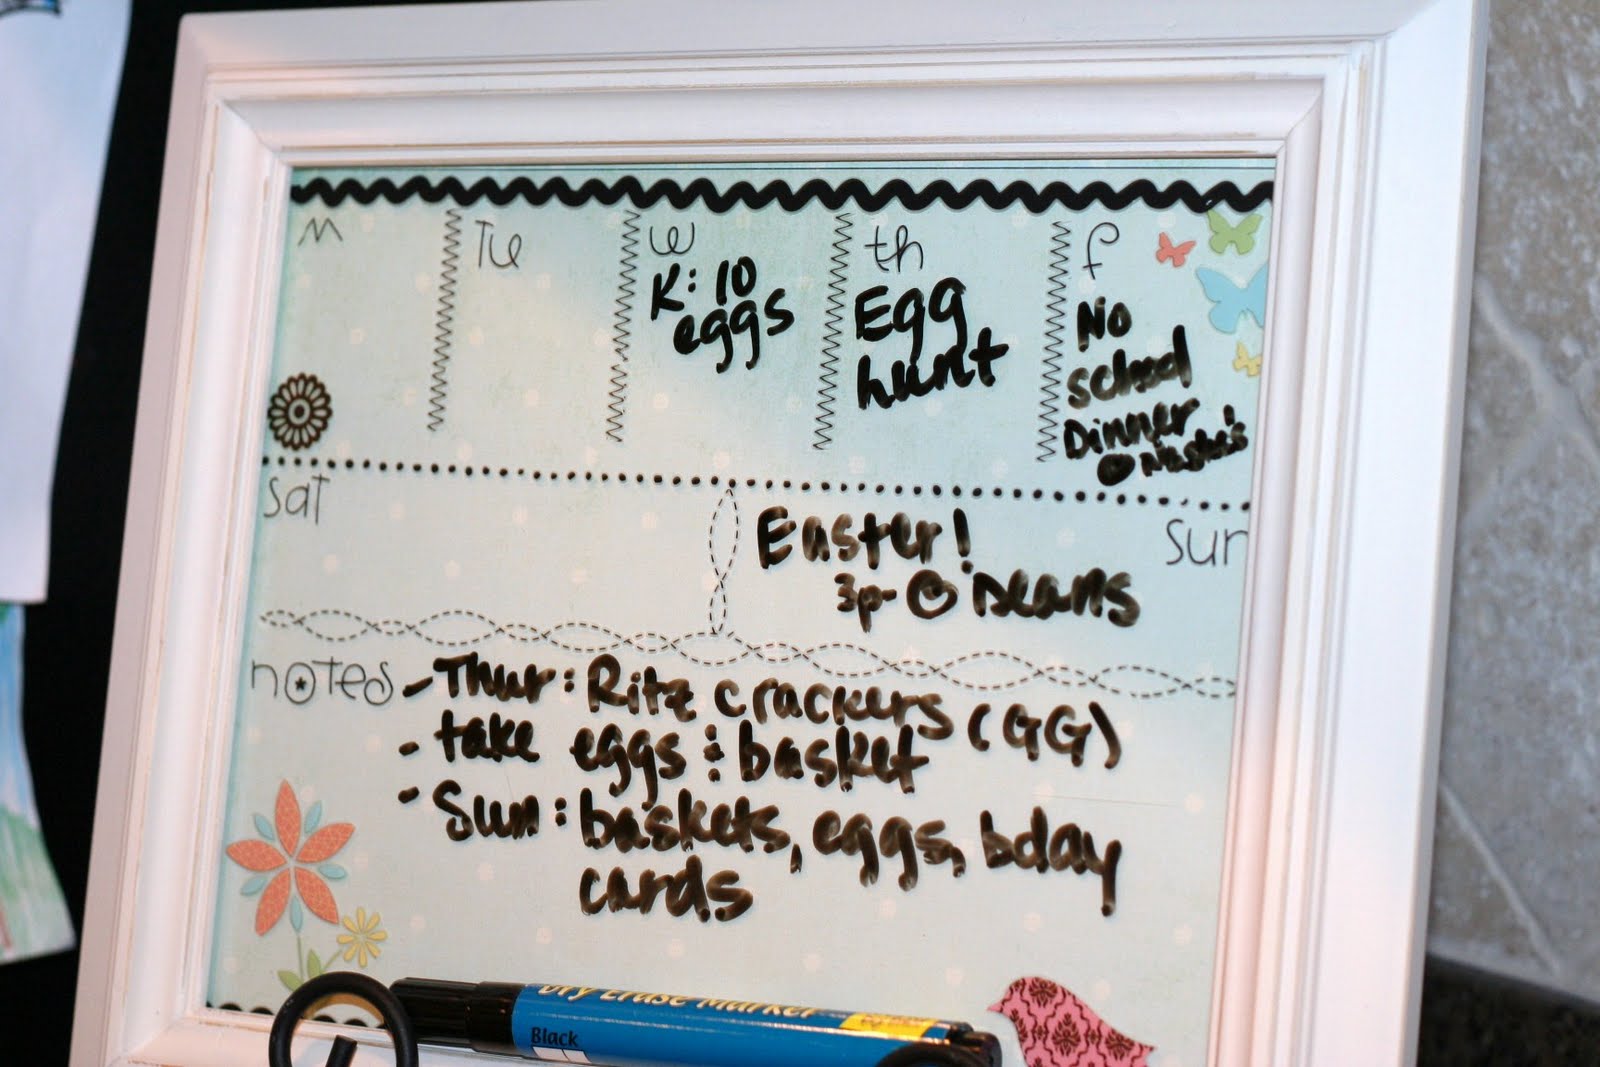 M
Tu
W
K: 10
eggs
th
Egg
hunt
f
No
school
Dinner
@
Sat
Sun
Easter!
3p- @ Deans
notes
- Thur: Ritz crackers (GG)
- take eggs & basket
- Sun: baskets, eggs, bday
cards
Dry Erase Marker
Black